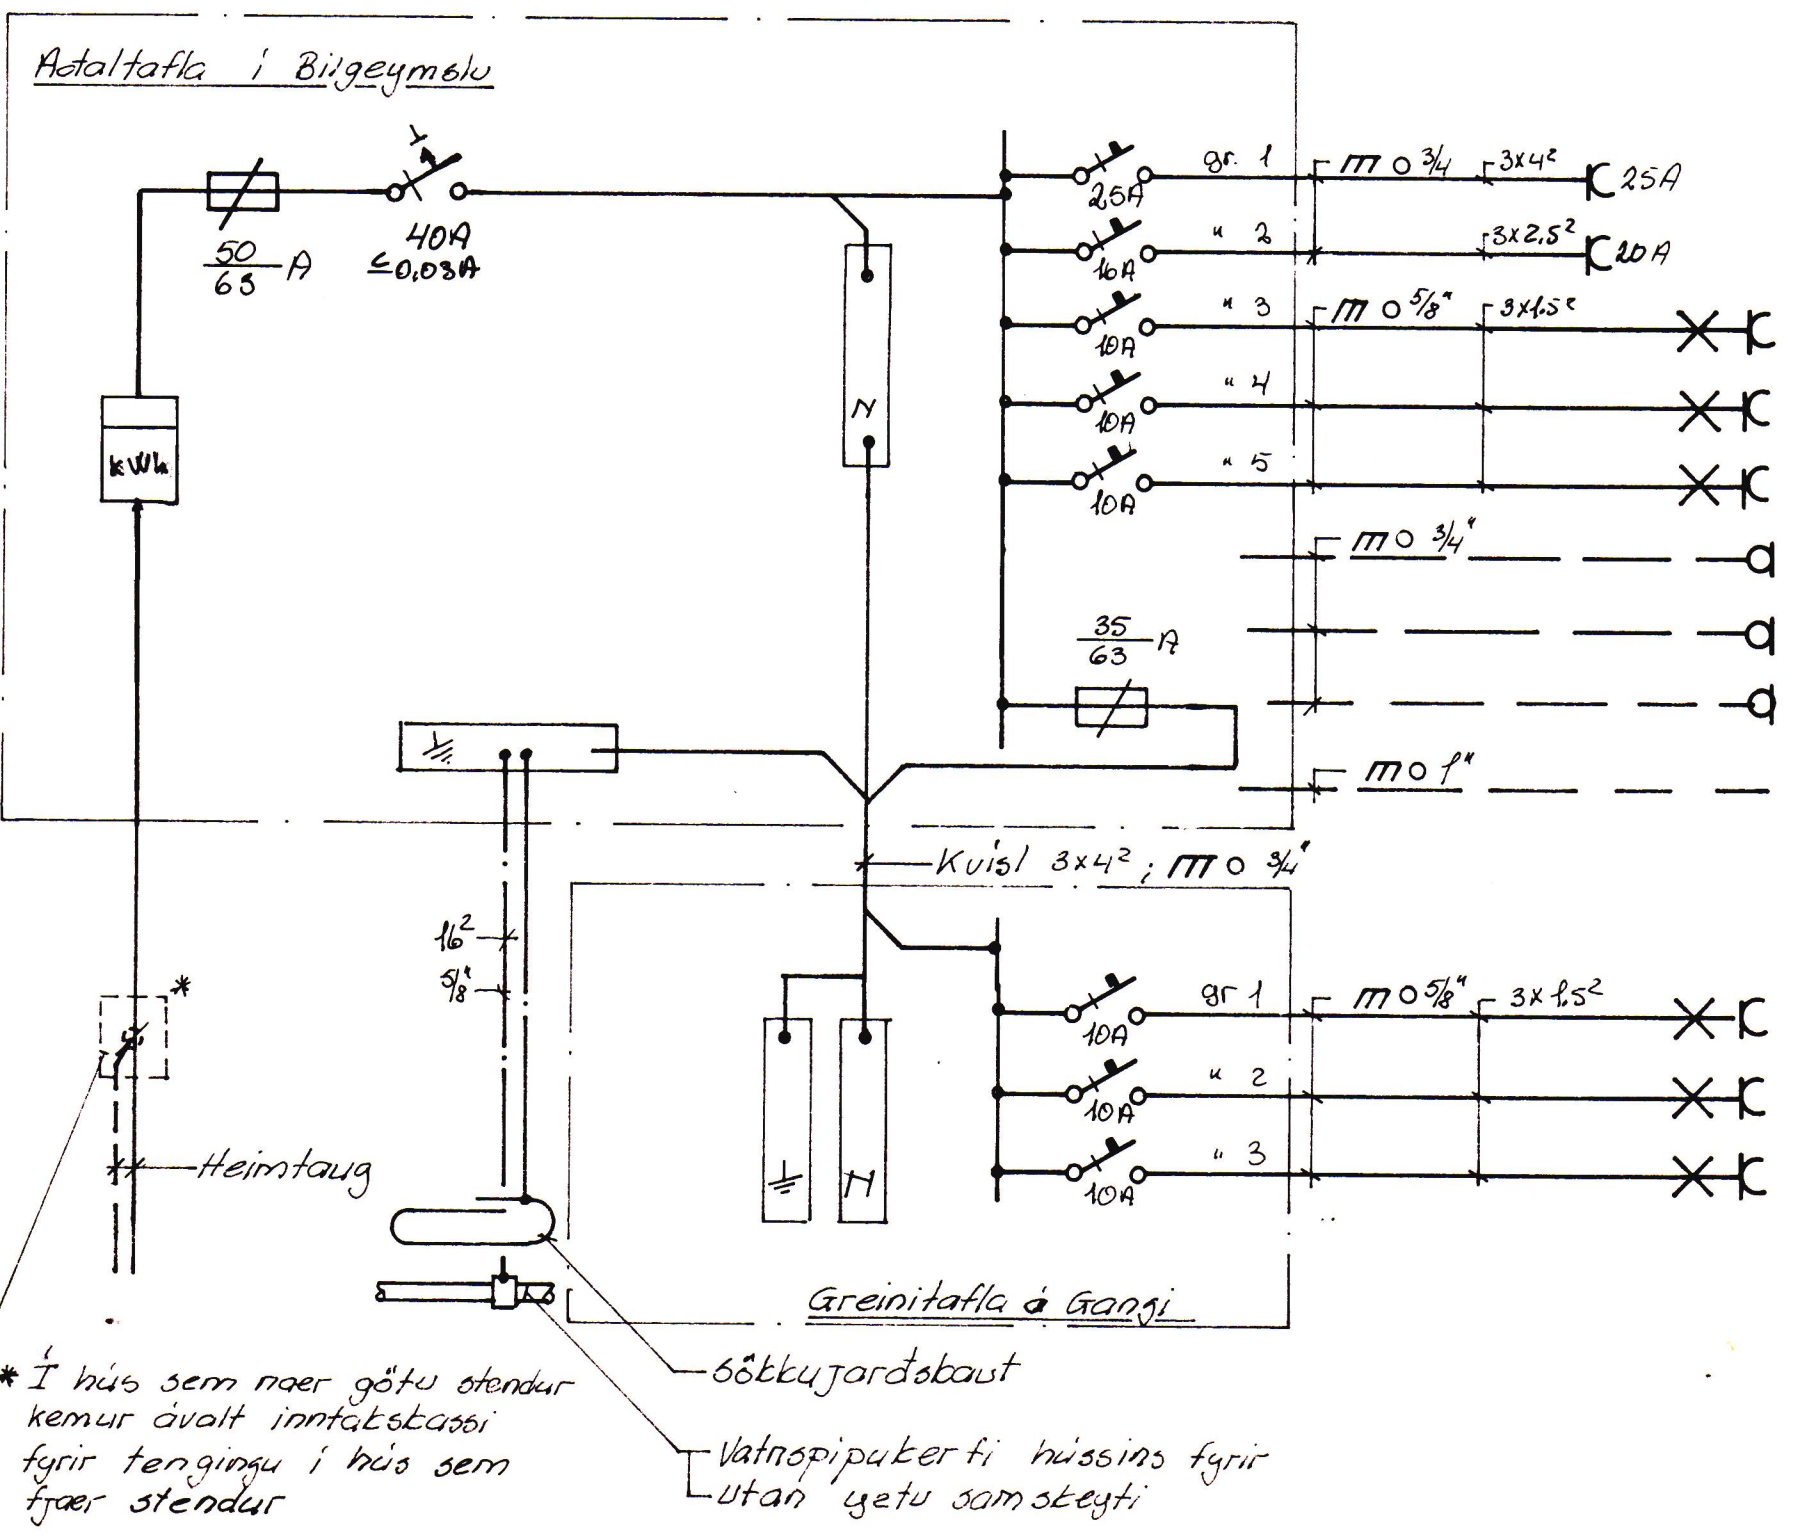 Aðaltafla í Bílgeymslu
50
63 A
40A
≤0,03A
N
kWh
25A
gr. 1
m o 3/4
3x4²
25A
16A
" 2
3x2.5²
20A
10A
" 3
m o 5/8"
3x1.5²
10A
" 4
10A
" 5
m o 3/4"
35
63 A
m o 1"
Kvísl 3x4² ; m o 3/4"
16²
5/8"
*
Heimtaug
10A
gr 1
m o 5/8"
3x1.5²
10A
" 2
10A
" 3
N
Greinitafla á Gangi
Sökkujarðskaut
Vatnspípukerfi hússins fyrir
utan götu samskeyti
* Í hús sem nær götu stendur
kemur ávalt inntakskassi
fyrir tengingu í hús sem
fjær stendur